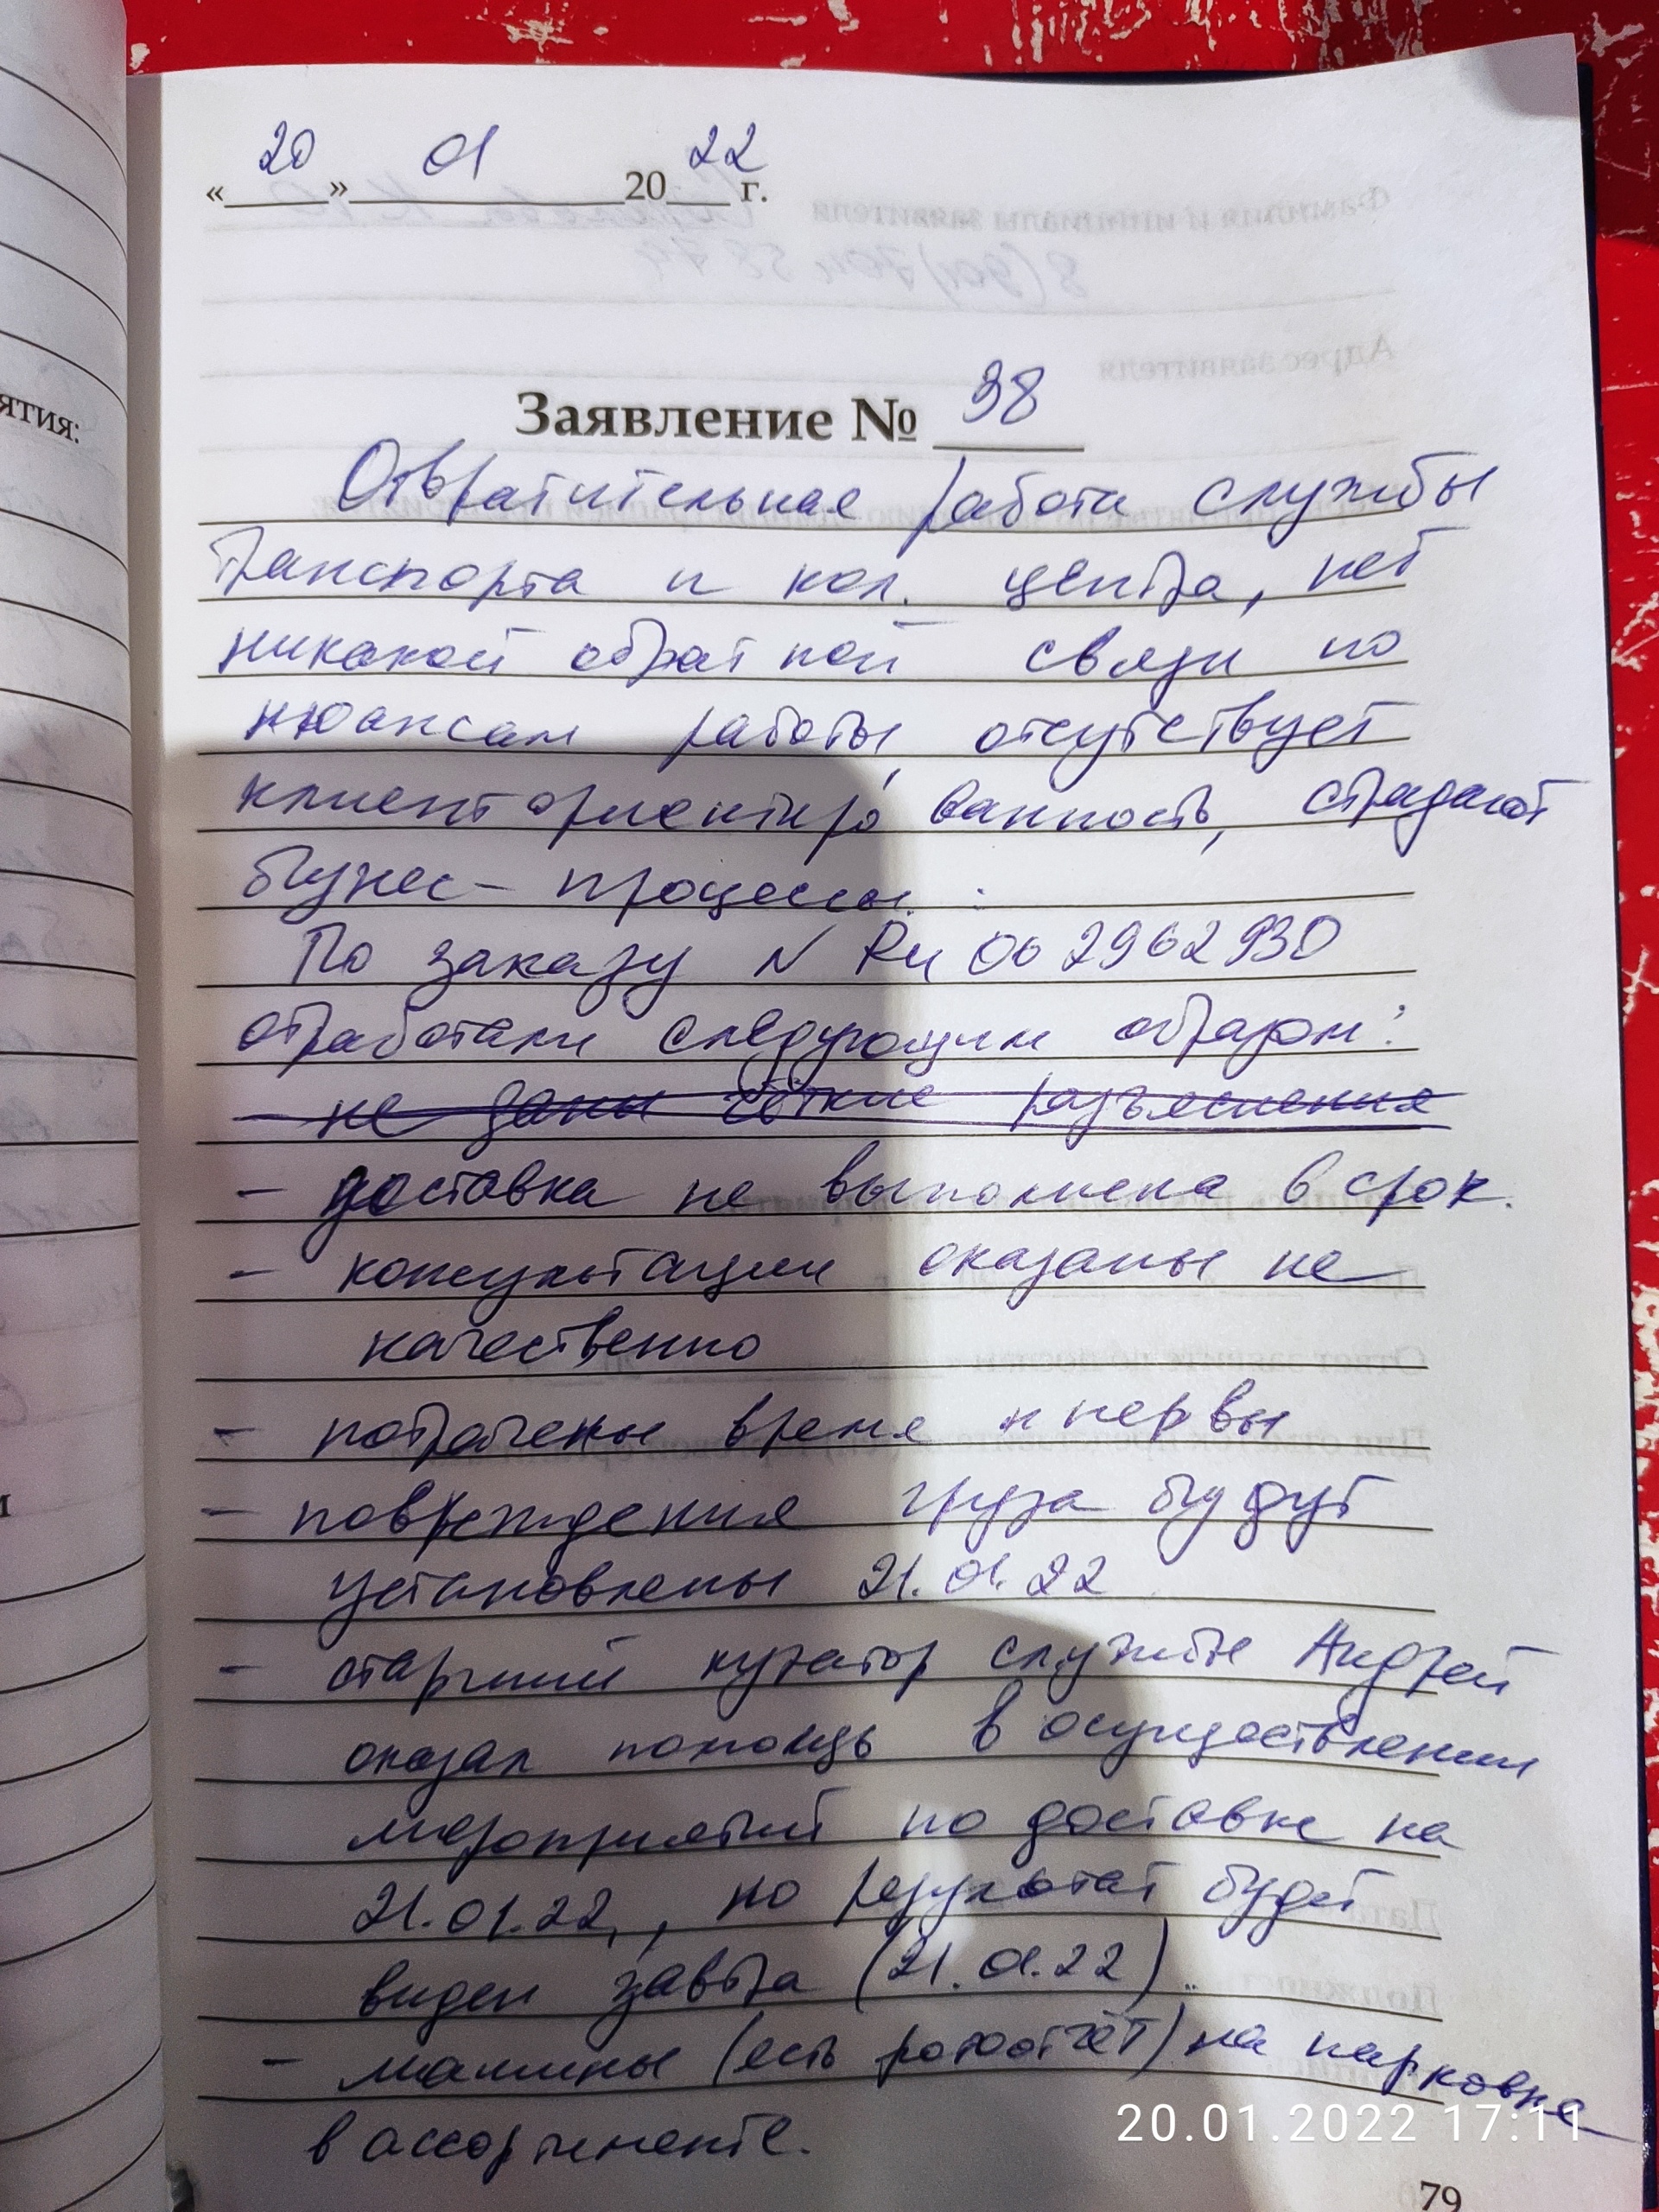 « 20 » 01 20 22 г.
Заявление № 98
Отвратительная работа службы
транспорта и кол. центра, нет
никакой обратной связи по
нюансам работы, отсутствует
клиенториентиро ванность, страдают
бизнес - процессы.
По заказу N Ru 00 7962930
отработали следующим образом:
- не даны чёткие разъяснения
- доставка не выполнена в срок.
- консультации оказаны не
качественно
- потрачены время и нервы
- повреждения груза будут
установлены 21.01.22
- старший куратор службы Андрей
оказал помощь в осуществлении
мероприятий по доставке на
21.01.22, но результат будет
виден завтра (21.01.22).
- машины (есть фотоотчёт) на парковке
в ассортименте.
20.01.2022 17:11
79
ятия: